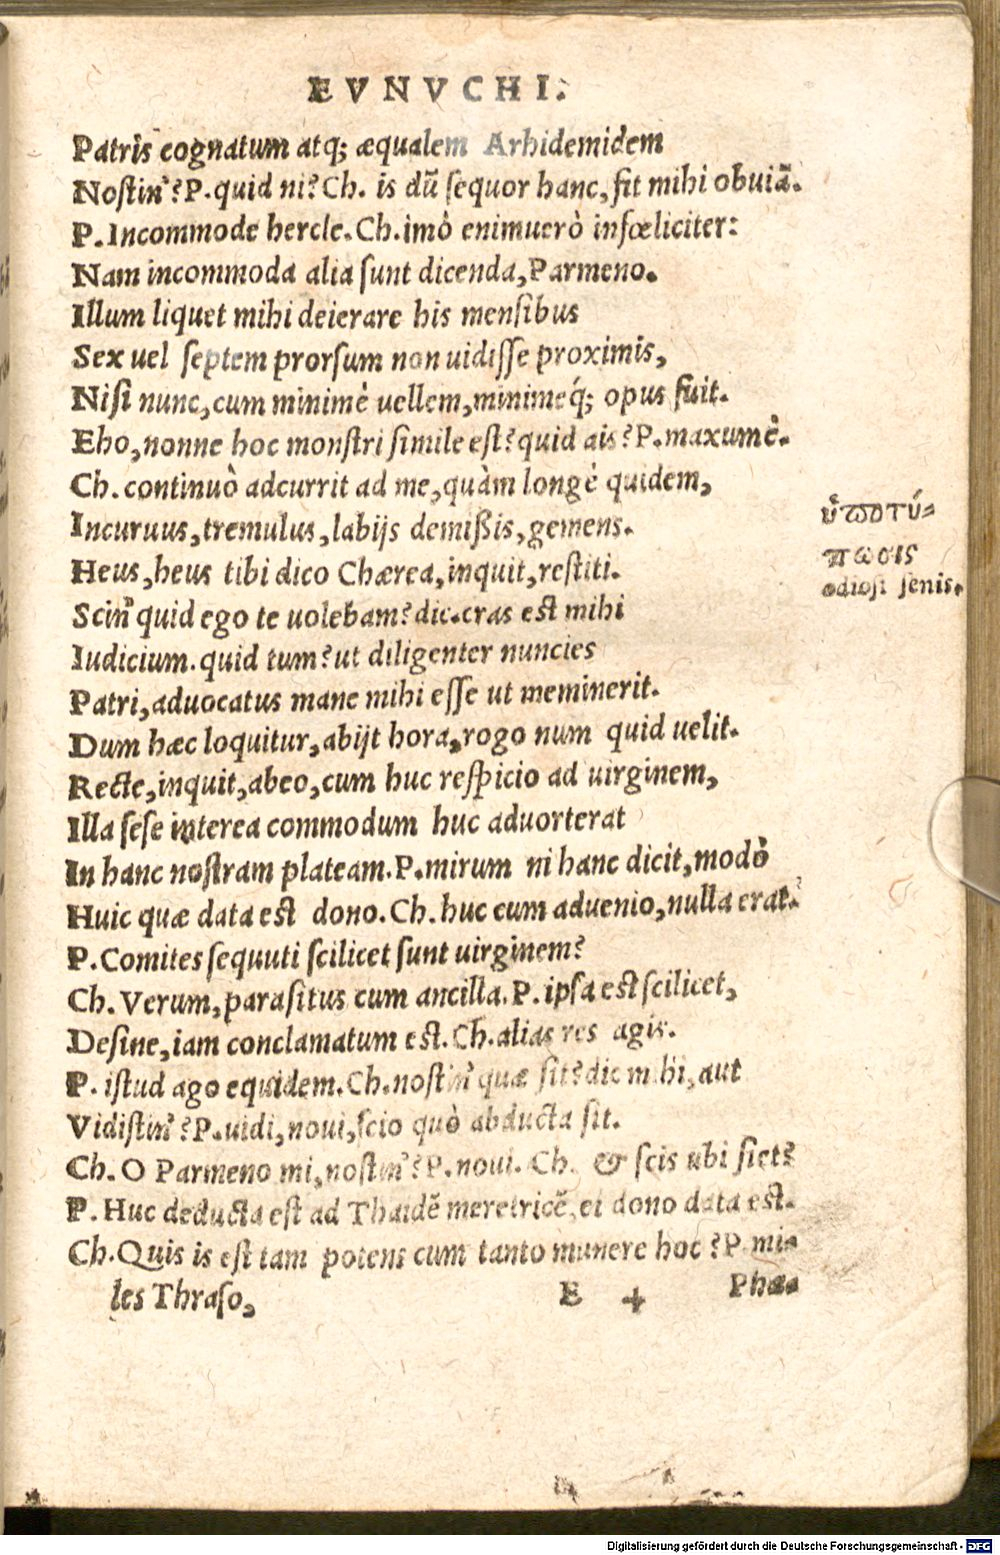 EVNVCHI.
Patris cognatum atq; æqualem Arhidemidem
Nostin'? P. quid ni? Ch. is dũ sequor hanc, fit mihi obuiã.
P. Incommode hercle. Ch. imò enimuerò infœliciter:
Nam incommoda alia sunt dicenda, Parmeno.
Illum liquet mihi deierare his mensibus
Sex uel septem prorsum non uidisse proximis,
Nisi nunc, cum minimè uellem, minimeq́; opus fuit.
Eho, nonne hoc monstri simile est? quid ais? P. maxumè.
Ch. continuò adcurrit ad me, quàm longè quidem,
Incuruus, tremulus, labijs demißis, gemens.
ὑποτύ-
πωσις
odiosi senis.
Heus, heus tibi dico Chærea, inquit, restiti.
Scin' quid ego te uolebam? dic. cras est mihi
Iudicium. quid tum? ut diligenter nuncies
Patri, aduocatus mane mihi esse ut meminerit.
Dum hæc loquitur, abijt hora, rogo num quid uelit.
Recte, inquit, abeo, cum huc respicio ad uirginem,
Illa sese interea commodum huc aduorterat
In hanc nostram plateam. P. mirum ni hanc dicit, modò
Huic quæ data est dono. Ch. huc cum aduenio, nulla erat.
P. Comites sequuti scilicet sunt uirginem?
Ch. Verum, parasitus cum ancilla. P. ipsa est scilicet,
Desine, iam conclamatum est. Ch. alias res agis.
P. istud ago equidem. Ch. nostin' quæ sit? dic mihi, aut
Vidistin'? P. uidi, noui, scio quò abducta sit.
Ch. O Parmeno mi, nostin'? P. noui. Ch. & scis ubi siet?
P. Huc deducta est ad Thaidẽ meretricẽ, ei dono data est.
Ch. Quis is est tam potens cum tanto munere hoc? P. mi-
les Thraso, E 4 Phæ-
Digitalisierung gefördert durch die Deutsche Forschungsgemeinschaft - DFG